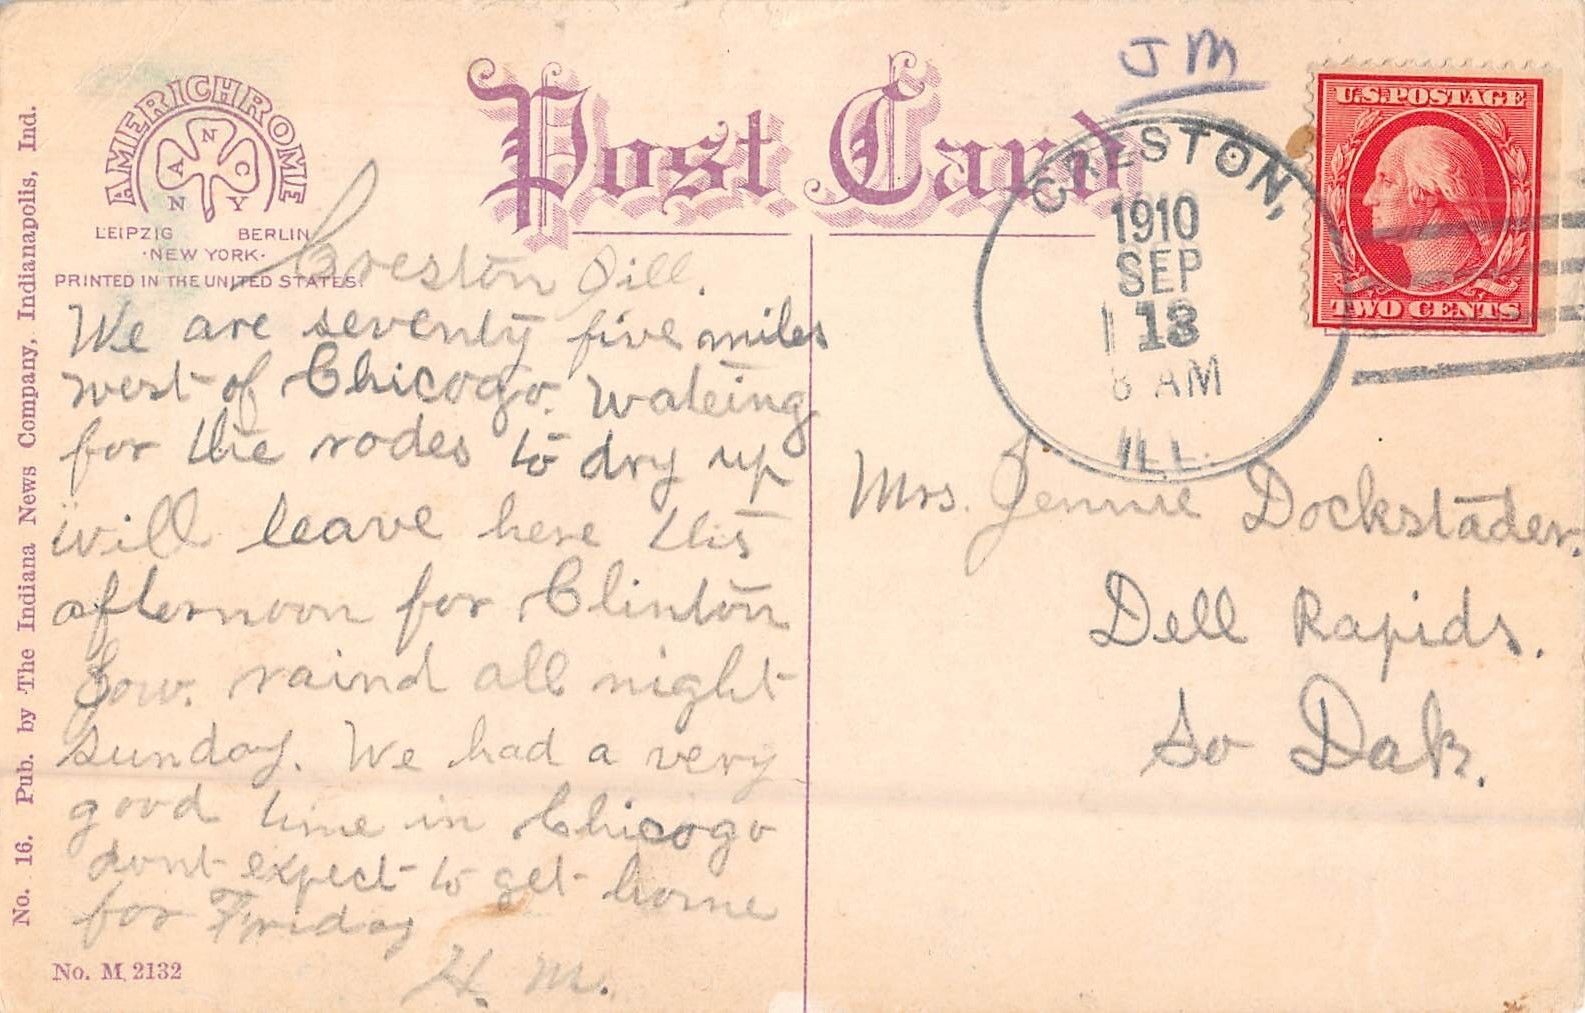 No. 16. Pub. by The Indiana News Company, Indianapolis, Ind.
AMERICHROME
N
A C
N Y
LEIPZIG BERLIN
·NEW YORK·
PRINTED IN THE UNITED STATES.
Post Card
JM
CRESTON,
1910
SEP
13
8 AM
ILL.
U.S. POSTAGE
TWO CENTS
Creston Ill.
We are seventy five miles
west of Chicogo. wateing
for the rodes to dry up
will leave here this
afternoon for Clinton
Iow. raind all night
sunday. We had a very
good time in Chicogo
dont expect to get home
for Friday
H. M.
No. M. 2132
Mrs. Jennie Dockstader.
Dell Rapids.
So Dak.